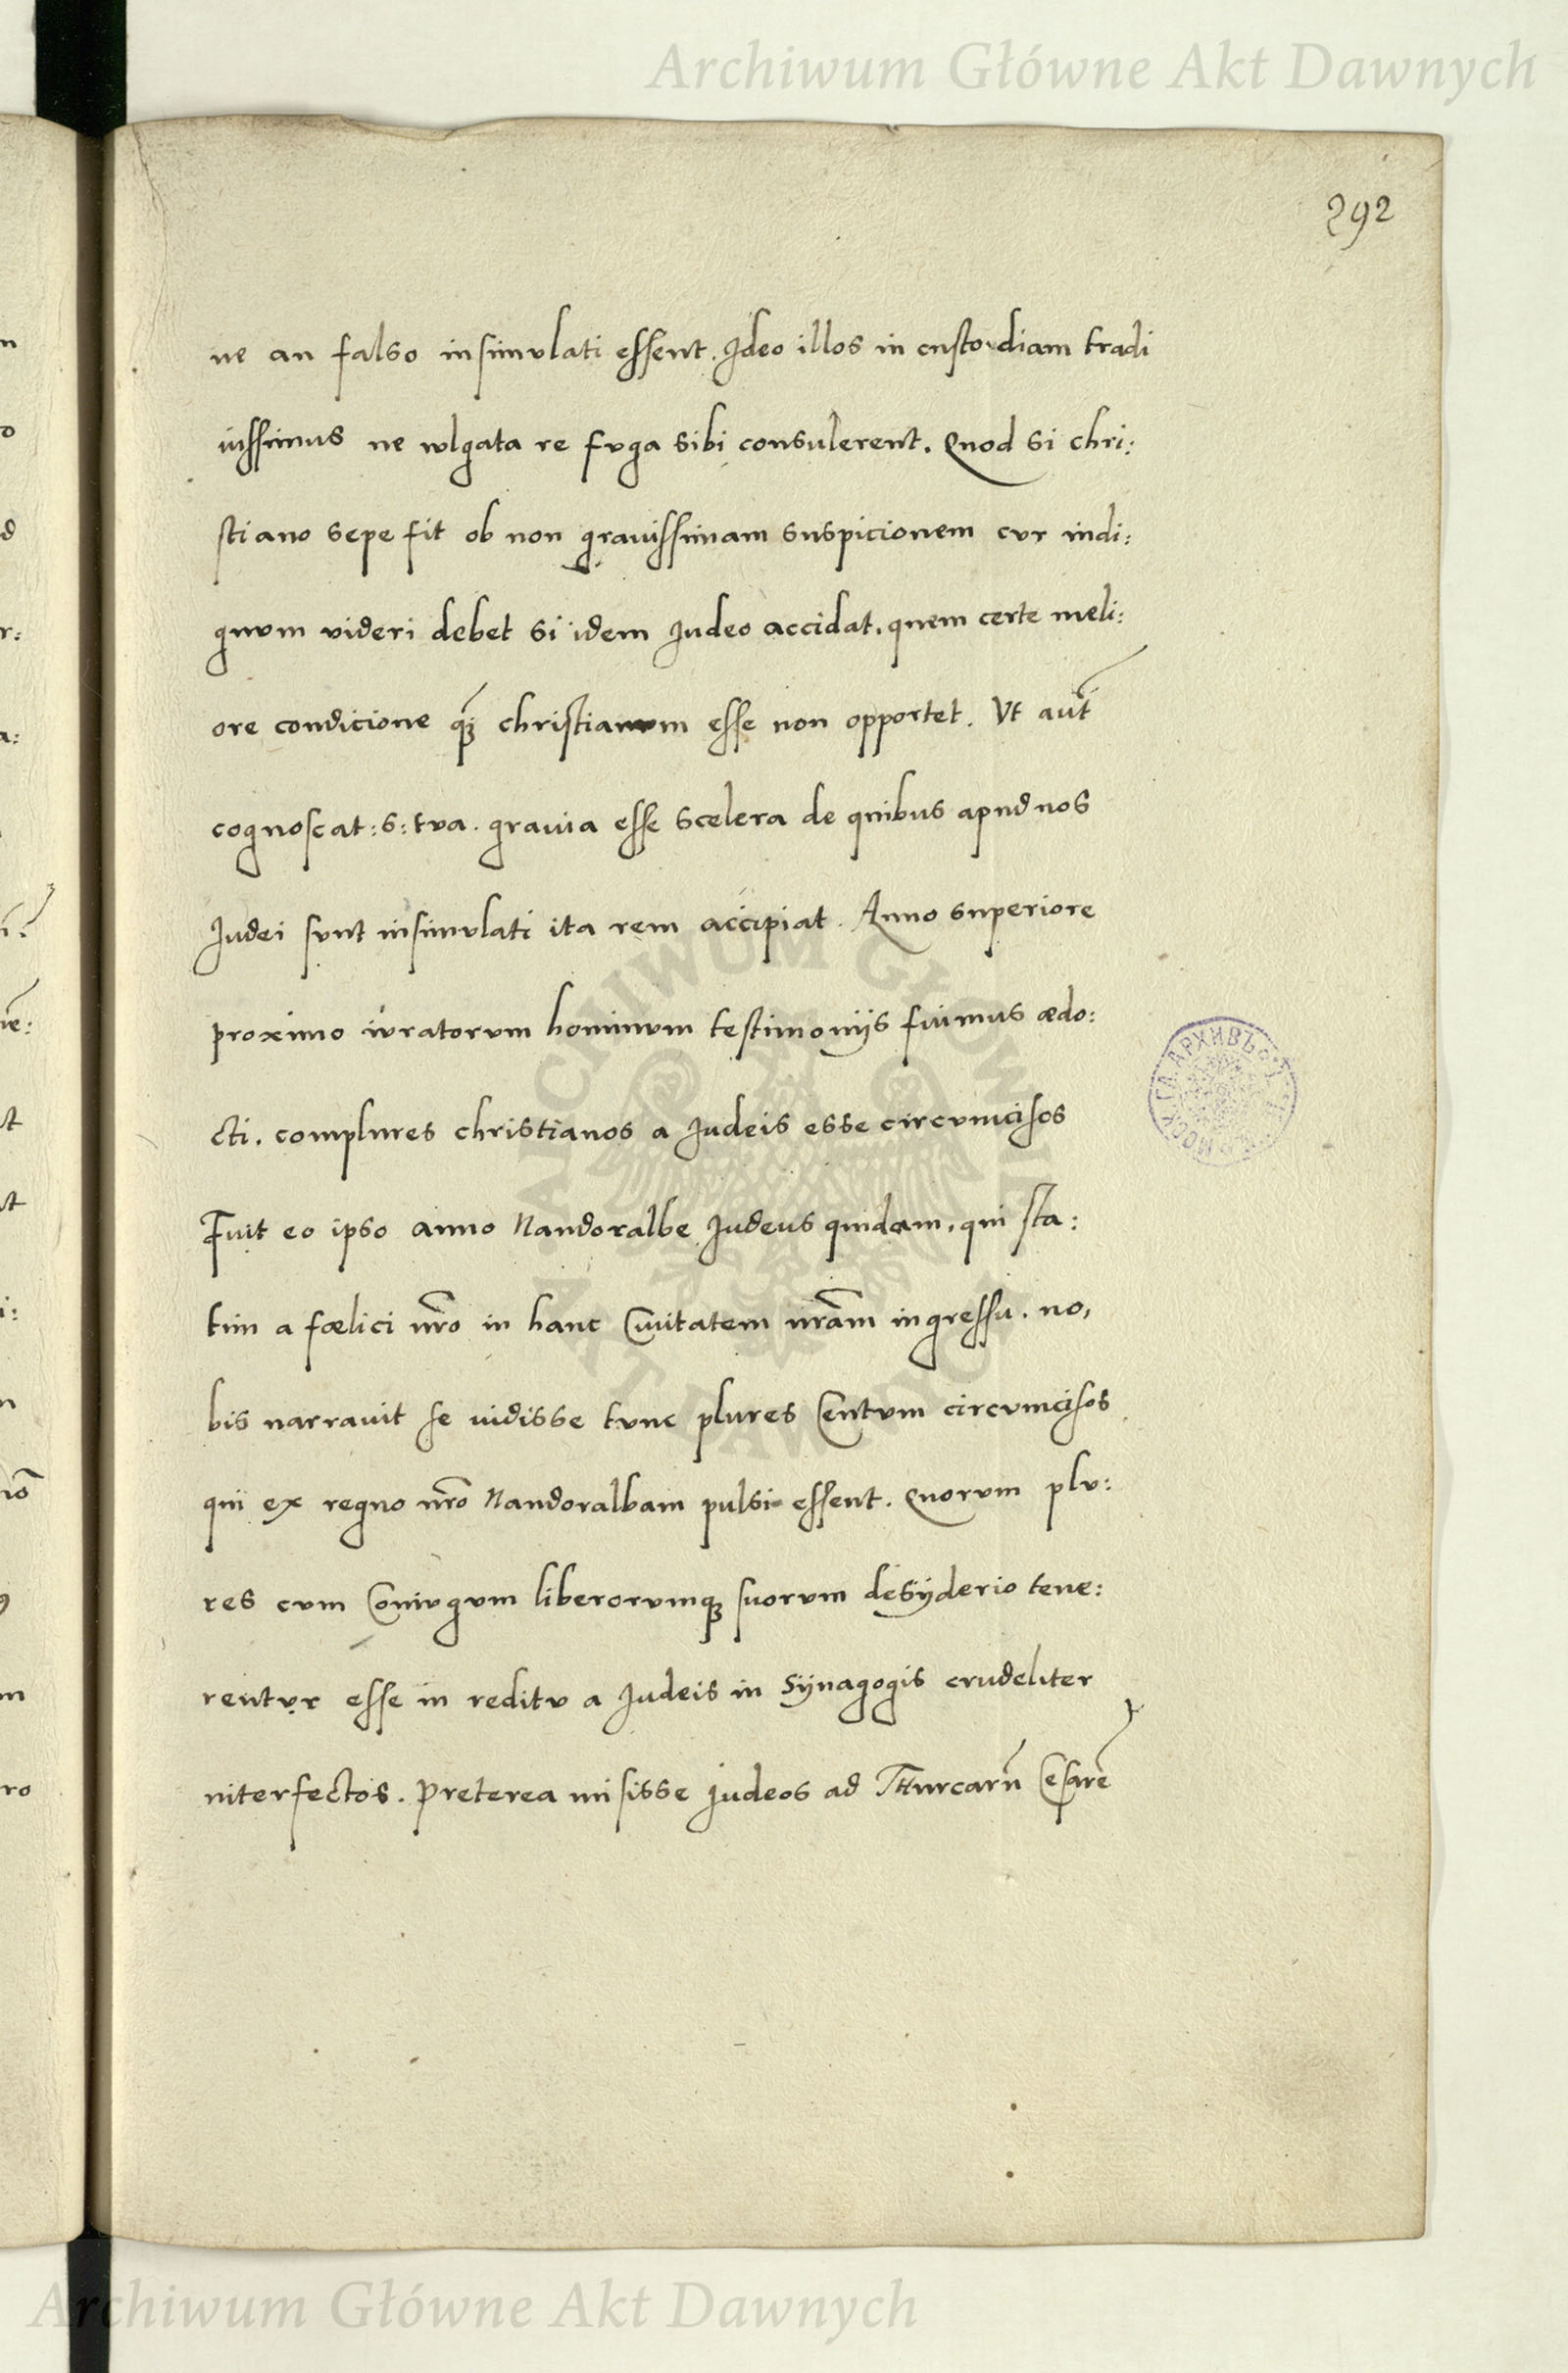 Archiwum Główne Akt Dawnych
292
ne an falso insimulati essent. Ideo illos in custoudiam tradi
iussimus ne wlgata re fuga sibi consulerent. Quod si chri:
stiano sepe fit ob non gravissimam suspicionem cur indi:
gnum videri debet si idem Iudeo accidat, quem certe meli:
ore condicione q̃ꝫ christianum esse non opportet. Vt aut̃
cognoscat :s: tua. gravia esse scelera de quibus apud nos
Iudei sunt insimulati ita rem accipiat. Anno superiore
proximo iuratorum hominum testimonijs fuimus ædo:
cti. complures christianos a Iudeis esse circumcisos
Fuit eo ipso anno Nandoralbe Iudeus quidam, qui sta:
tim a fœlici nr̃o in hanc Civitatem nr̃am ingressu. no,
bis narravit se vidisse tunc plures Centum circumcisos
qui ex regno nr̃o Nandoralbam pulsi essent. Quorum plu:
res cum Coniugum liberorumqꝫ suorum desyderio tene:
rentur esse in reditu a Iudeis in Synagogis crudeliter
interfectos. Preterea misisse Iudeos ad Thurcarũ Cesarẽ
ARCHIWUM GŁÓWNE AKT DAWNYCH
Archiwum Główne Akt Dawnych